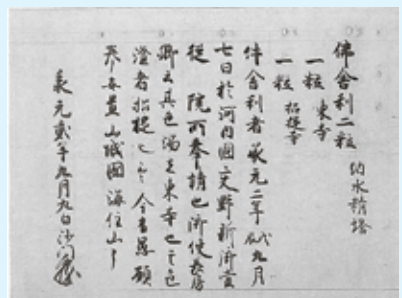 佛舍利二粒 納水精塔
一粒 東寺
一粒 招提寺
件舍利者承元二年戊辰九月
七日於河内國交野新御堂
從 院所奉請也御使長房
卿云其色濁是東寺也其色
澄者招提也云々今書慕顧
安置山城國海住山
承元貳年九月九日沙門